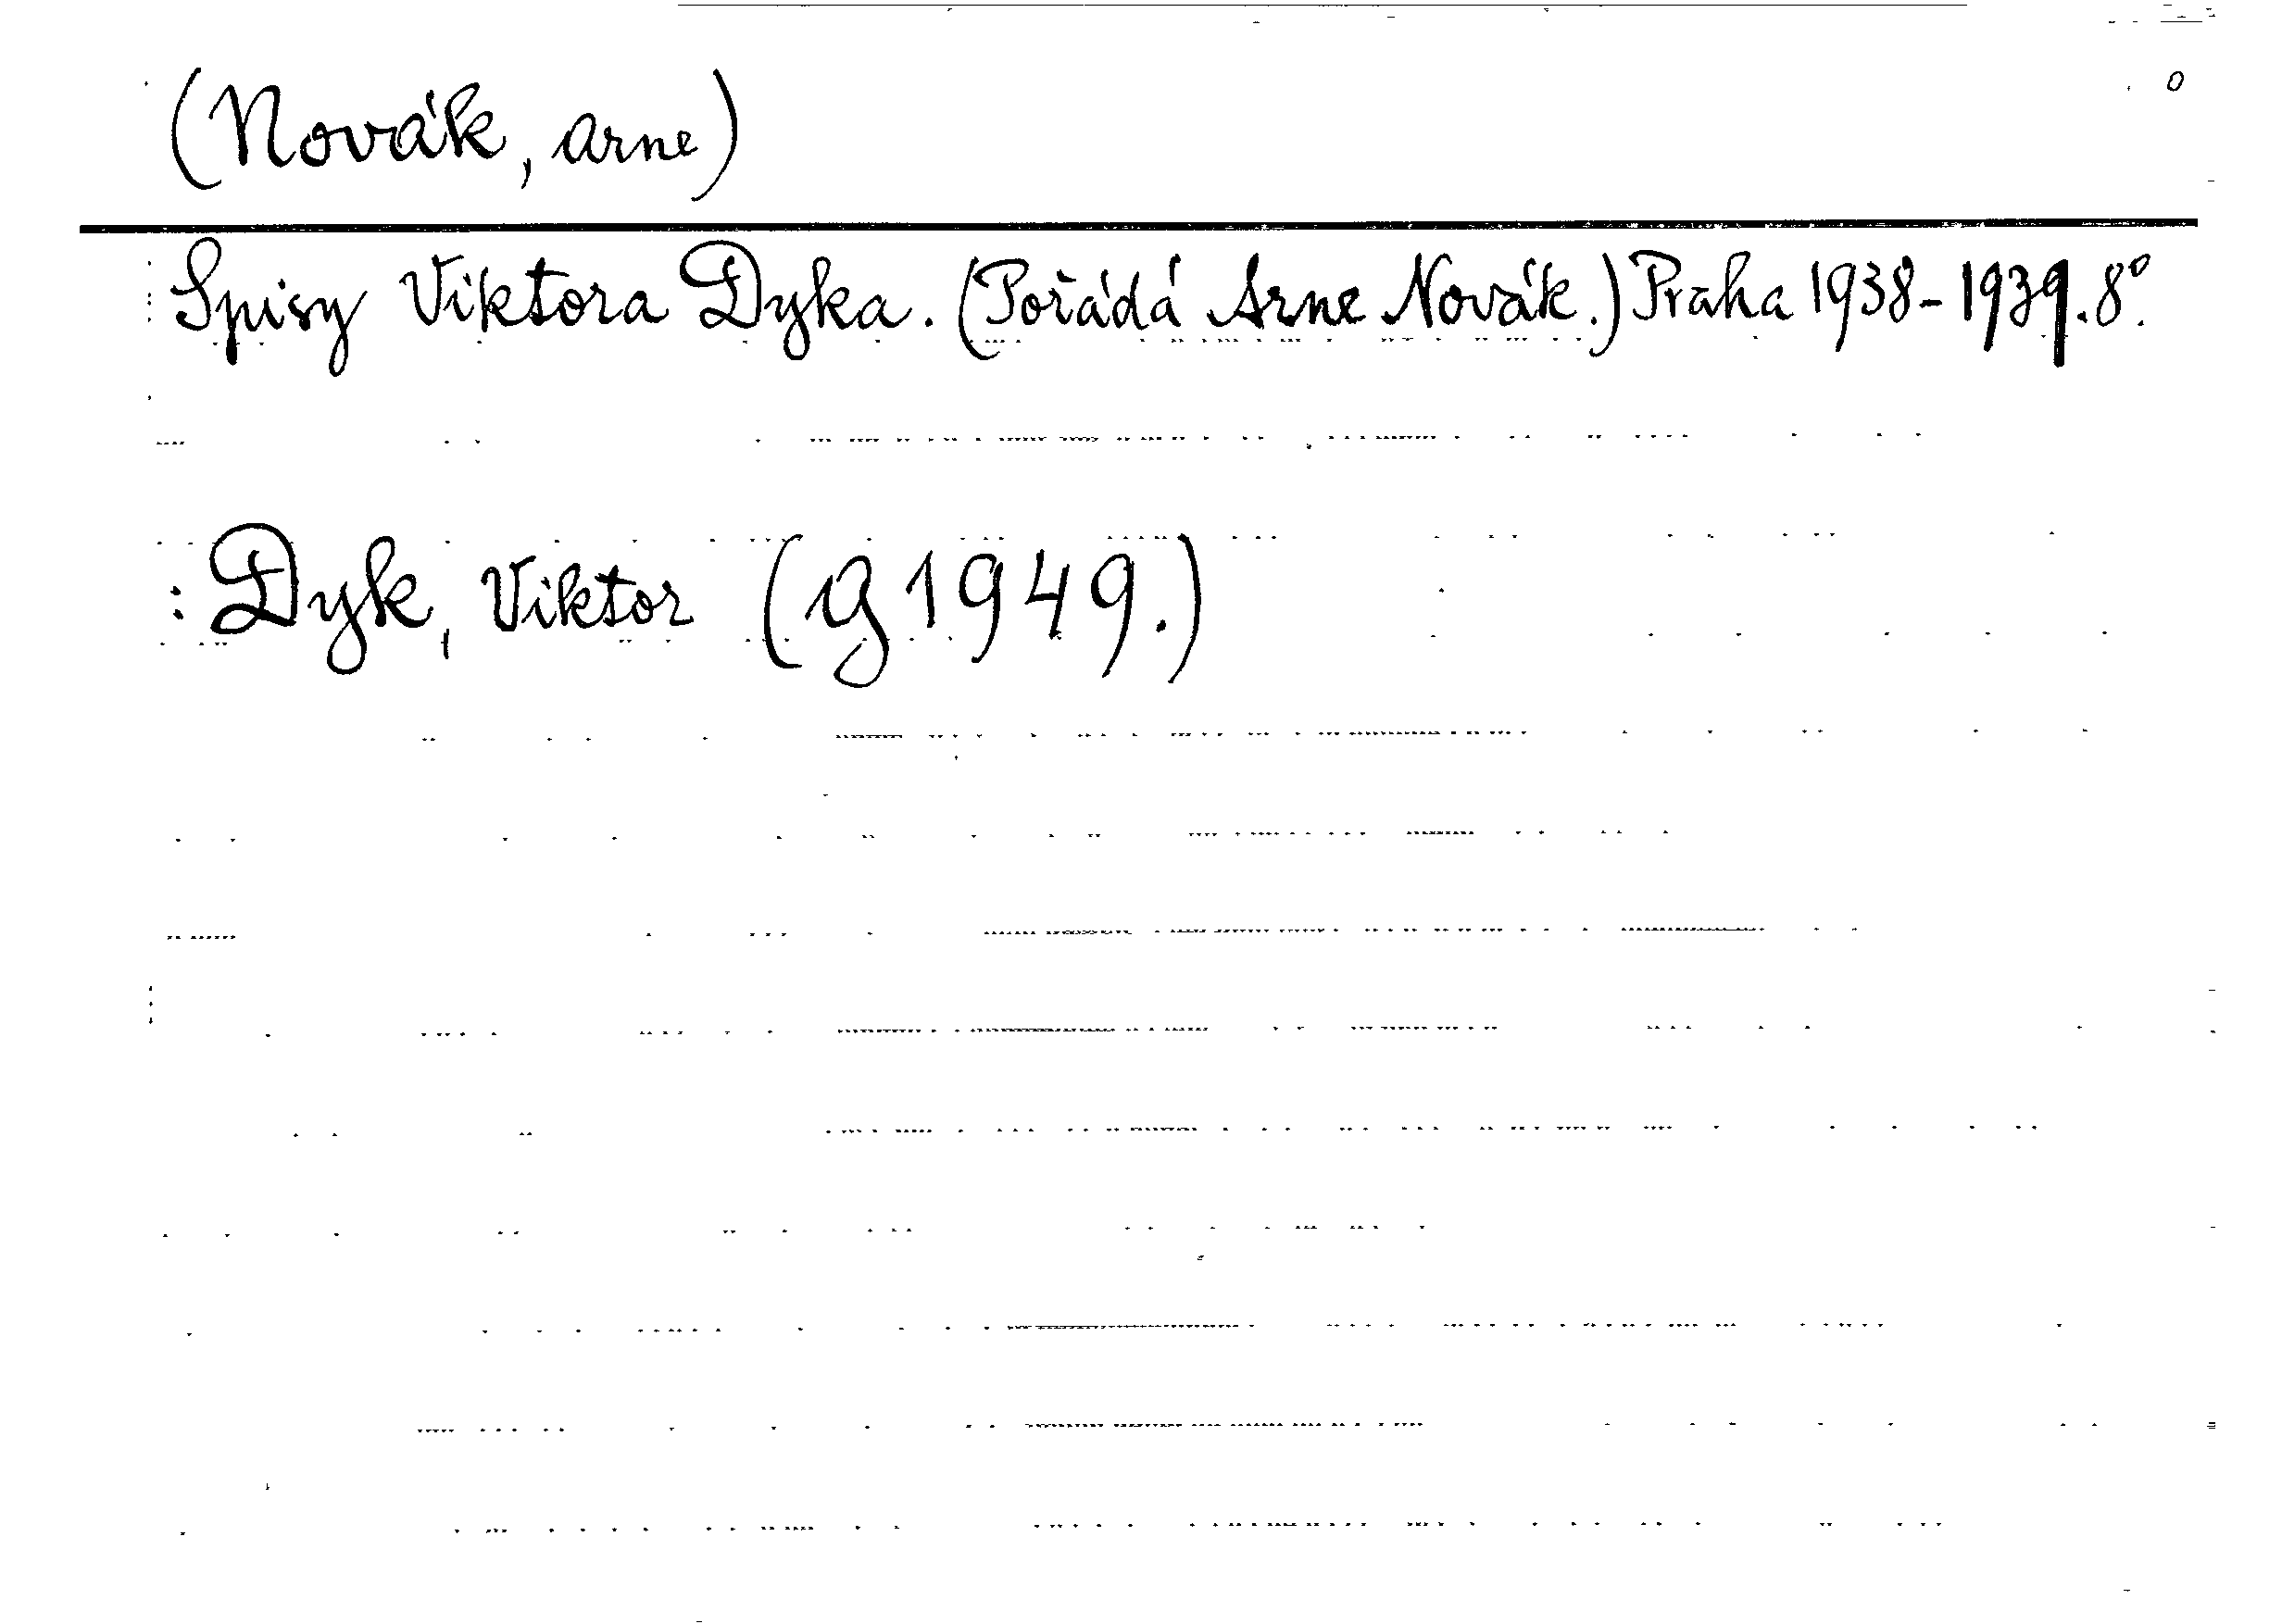 (Novák, Arne)
Spisy Viktora Dyka. (Pořádá Arne Novák.) Praha 1938-1939. 8°.
: Dyk, Viktor (g 1949.)